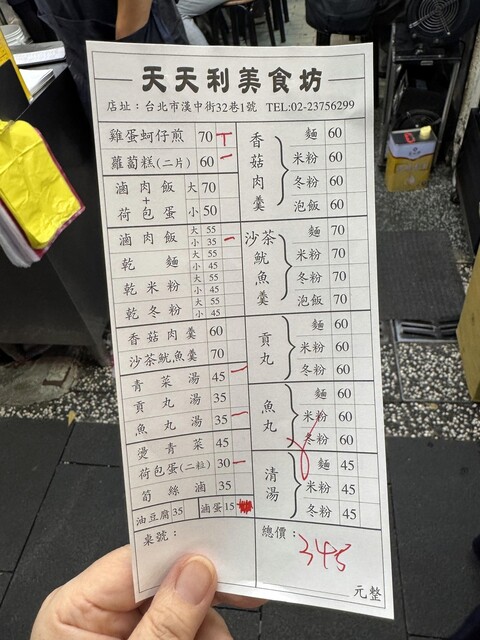 天天利美食坊
店址：台北市漢中街32巷1號 TEL:02-23756299
雞蛋蚵仔煎 70 T
蘿蔔糕(二片) 60 一
滷肉飯 + 荷包蛋 大 70
小 50
滷肉飯 大 55
小 35 一
乾麵 大 55
小 45
乾米粉 大 55
小 45
乾冬粉 大 55
小 45
香菇肉羹 60
沙茶魷魚羹 70
青菜湯 45 一
貢丸湯 35
魚丸湯 35 一
燙青菜 45
荷包蛋(二粒) 30 一
筍絲滷 35
油豆腐 35 滷蛋 15
桌號：
香菇肉羹 麵 60
米粉 60
冬粉 60
泡飯 60
沙茶魷魚羹 麵 70
米粉 70
冬粉 70
泡飯 70
貢丸 麵 60
米粉 60
冬粉 60
魚丸 麵 60
米粉 60
冬粉 60
清湯 麵 45
米粉 45
冬粉 45
總價：
345
元整